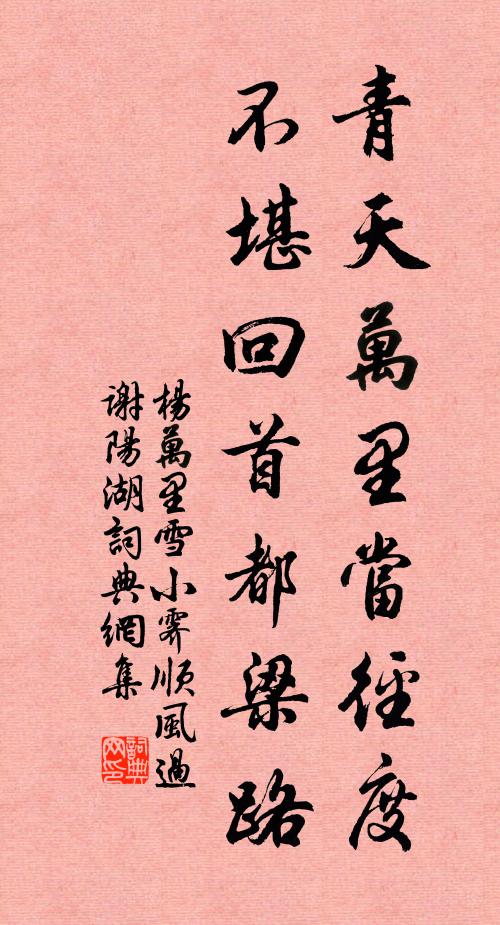 青天萬里當徑度
不堪回首都梁路
楊萬里雪小霽順風過
謝陽湖詞典網集
詞典网印